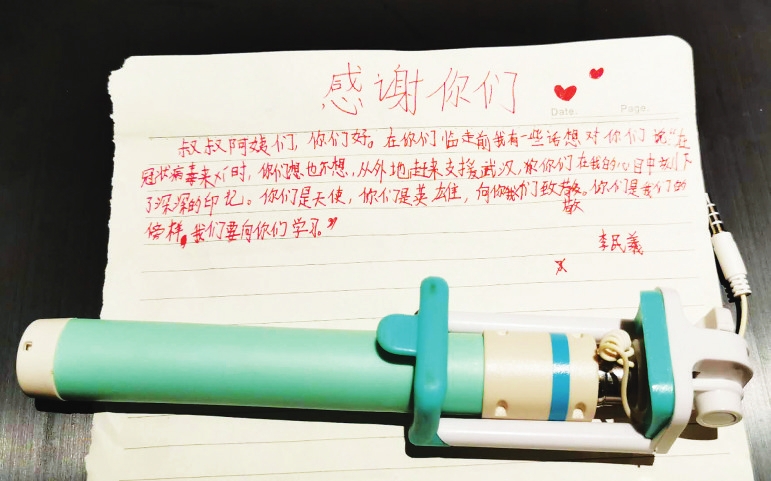 感谢你们
Date. Page.
叔叔阿姨们，你们好。在你们临走前我有一些话想对你们说“在
冠状病毒来时，你们想也不想，从外地赶来支援武汉，你们在我的心目中刻下
了深深的印记。你们是天使，你们是英雄，向你们致敬。你们是我们的
敬
榜样，我们要向你们学习。”
李民羲